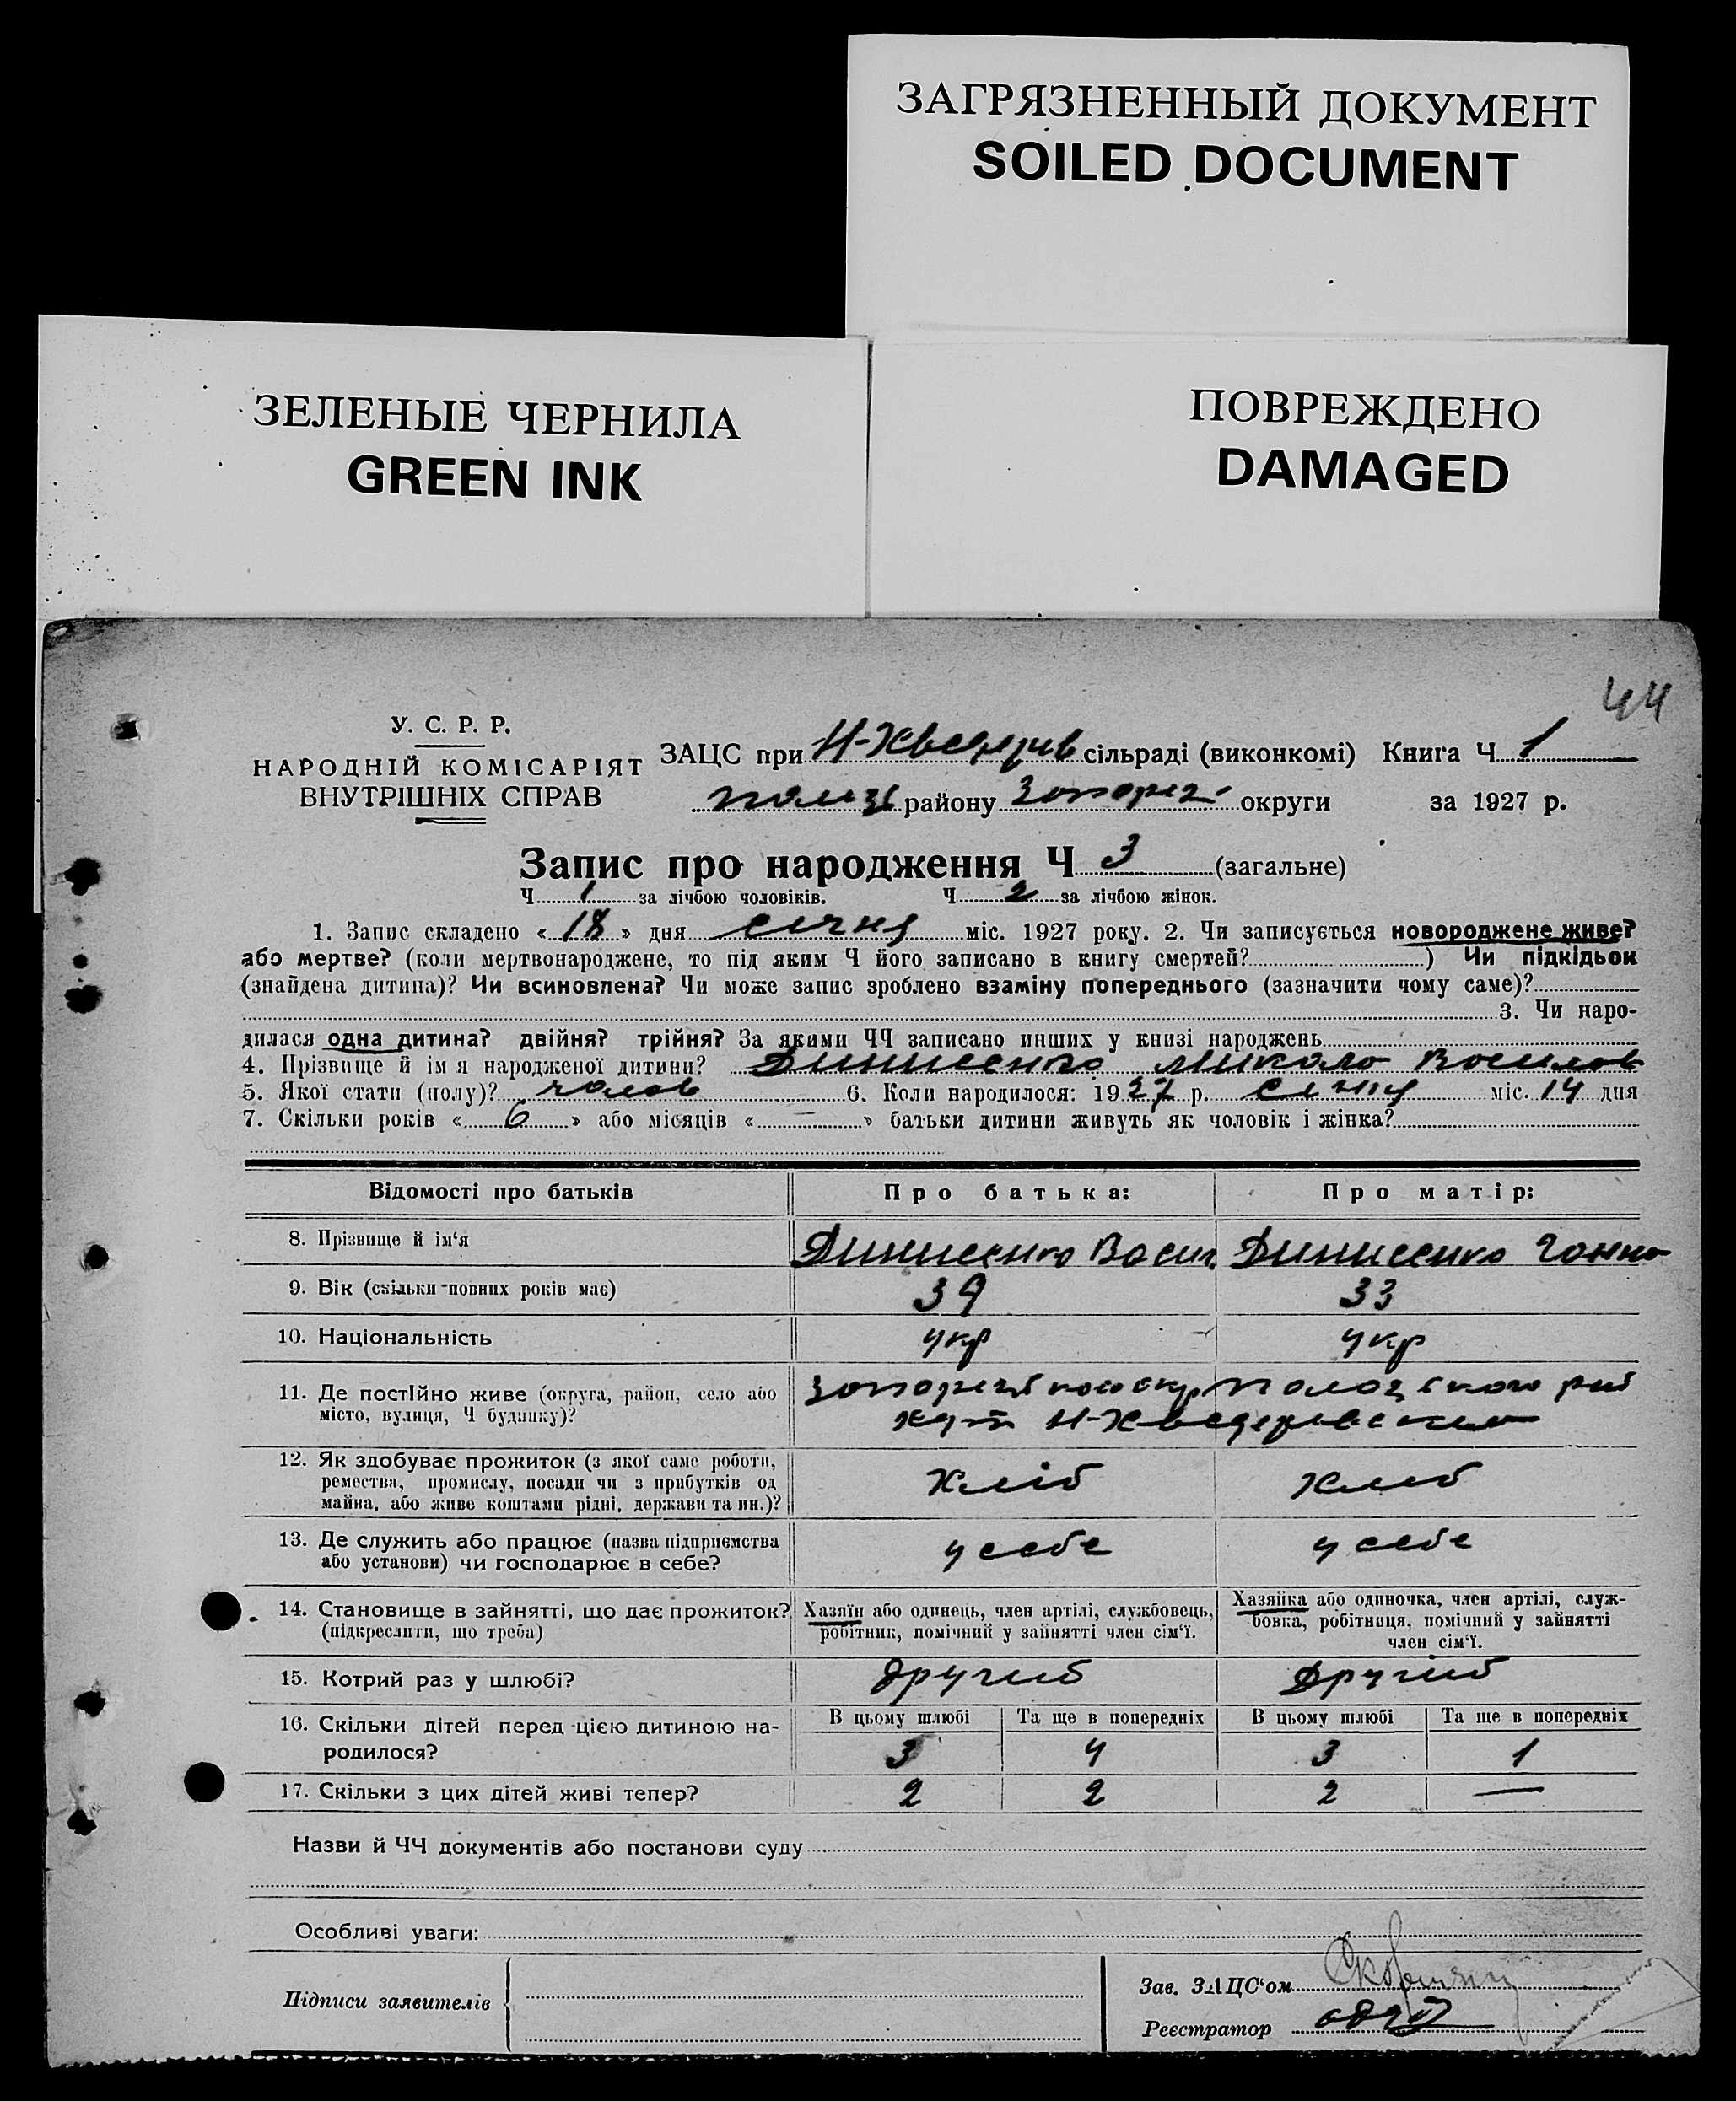 ЗАГРЯЗНЕННЫЙ ДОКУМЕНТ
SOILED DOCUMENT
ЗЕЛЕНЫЕ ЧЕРНИЛА
GREEN INK
ПОВРЕЖДЕНО
DAMAGED
44
У. С. Р. Р.
НАРОДНІЙ КОМІСАРІЯТ
ВНУТРІШНІХ СПРАВ
ЗАЦС при сільраді (виконкомі) Книга Ч 1
району округи за 1927 р.
Запис про народження Ч 3 (загальне)
Ч 1 за лічбою чоловіків. Ч 2 за лічбою жінок.
1. Запис складено « 18 » дня січня міс. 1927 року. 2. Чи записується новороджене живе?
або мертве? (коли мертвонароджене, то під яким Ч його записано в книгу смертей? ) Чи підкідьок
(знайдена дитина)? Чи всиновлена? Чи може запис зроблено взаміну попереднього (зазначити чому саме)?
3. Чи наро-
дилася одна дитина? двійня? трійня? За якими ЧЧ записано инших у книзі народжень
4. Прізвище й ім я народженої дитини? Динисенко Микола Василов
5. Якої стати (полу)? чолов 6. Коли народилося: 1927 р. січня міс. 14 дня
7. Скільки років « 6 » або місяців « — » батьки дитини живуть як чоловік і жінка?
Відомості про батьків Про батька: Про матір:
8. Прізвище й ім‘я Динисенко Васил Динисенко Ганна
9. Вік (скільки повних років має) 39 33
10. Національність укр укр
11. Де постІйно живе (округа, район, село або
місто, вулиця, Ч будинку)?
12. Як здобуває прожиток (з якої саме роботи,
ремества, промислу, посади чи з прибутків од
майна, або живе коштами рідні, держави та ин.)? Хліб Хліб
13. Де служить або працює (назва підприємства
або установи) чи господарює в себе? у себе у себе
14. Становище в зайнятті, що дає прожиток?
(підкреслити, що треба)
Хазяїн або одинець, член артілі, службовець,
робітник, помічний у зайнятті член сім‘ї.
Хазяйка або одиночка, член артілі, служ-
бовка, робітниця, помічний у зайнятті
член сім‘ї.
15. Котрий раз у шлюбі? другий Другий
16. Скільки дітей перед цією дитиною на-
родилося?
В цьому шлюбі Та ще в попередніх В цьому шлюбі Та ще в попередніх
3 4 3 1
17. Скільки з цих дітей живі тепер? 2 2 2 —
Назви й ЧЧ документів або постанови суду
Особливі уваги:
Підписи заявителів
Зав. ЗАЦС‘ом
Реєстратор